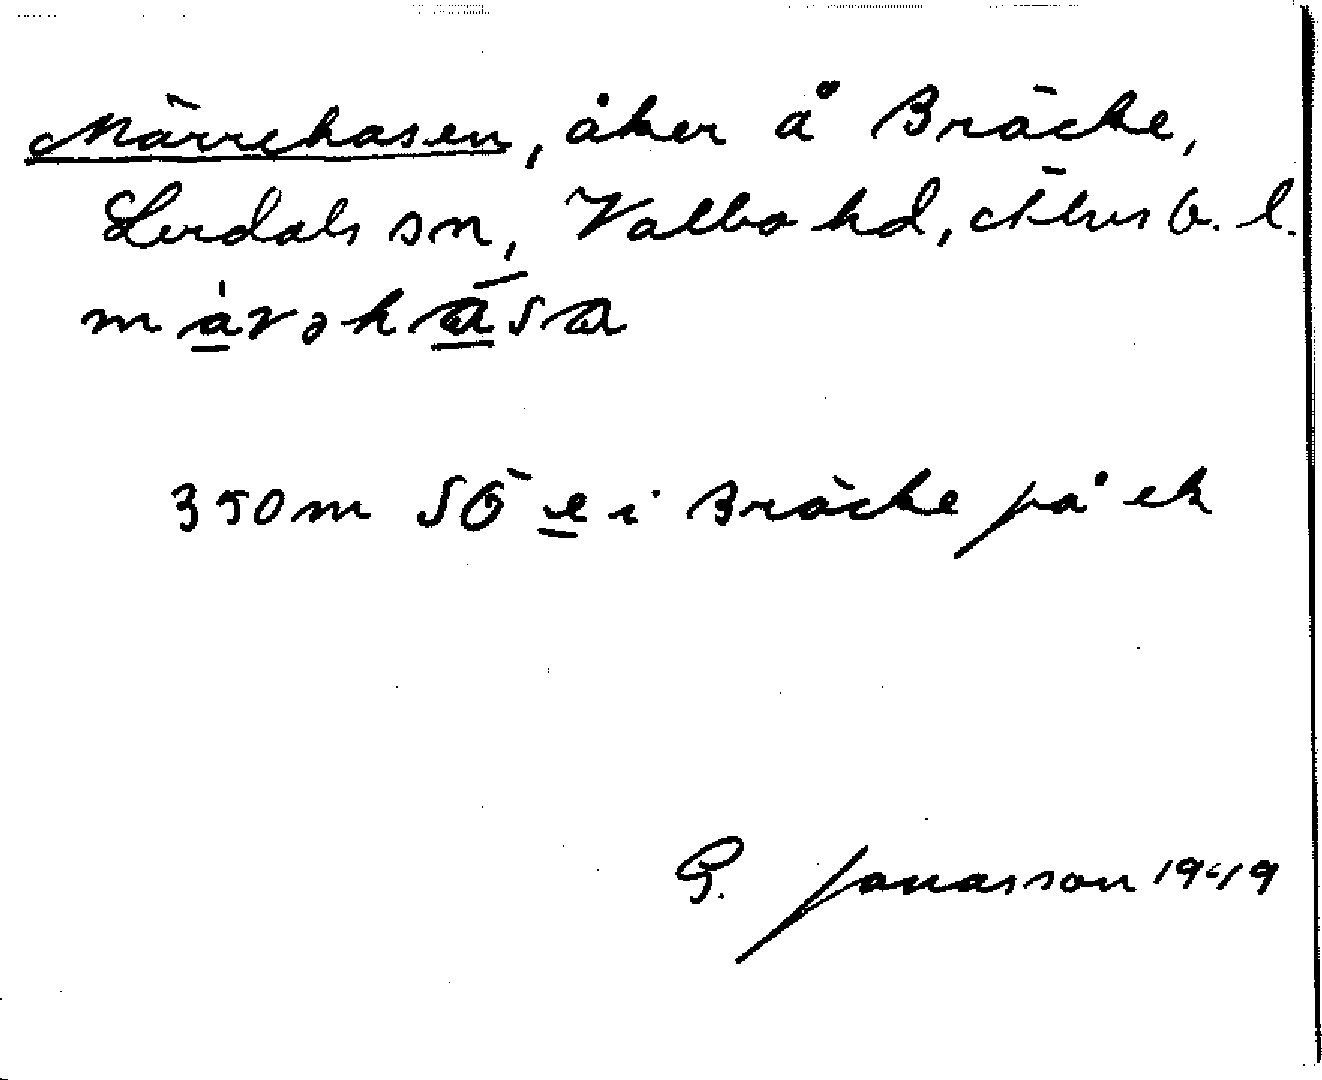 Märrehasen, åker å Bräcke,
Lerdals sn, Valbo hd, Älvsb. l.
350m SÖ e i Bräcke på ek
G. Jonasson 1949